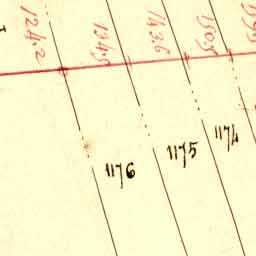 1242
1345
1436
1505
1176
1175
1174